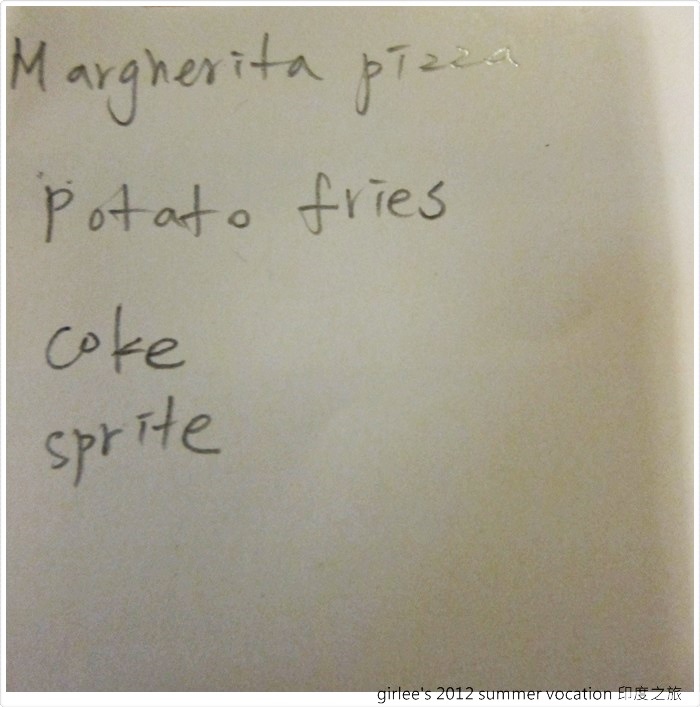 Margherita pizza
Potato fries
coke
sprite
girlee's 2012 summer vocation 印度之旅